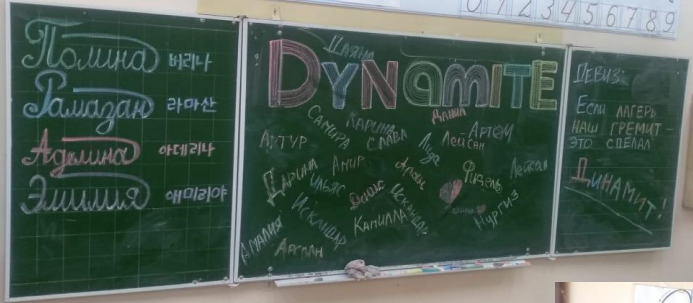 0 1 2 3 4 5 6 7 8 9
Полина 버리나
Рамазан 라마산
Аделина 아데리나
Эмилия 애미리야
Даяна
DYNAMITE
Самира Карина Данил
Артур Слава Артём
Лиза Лейсан
Дарина Амир Фидель Лейсан
Ильяс
Искандер Искандер
Камилла Нургиз
Амалия
Арслан
Девиз:
Если лагерь
наш гремит –
это сделал
Динамит!